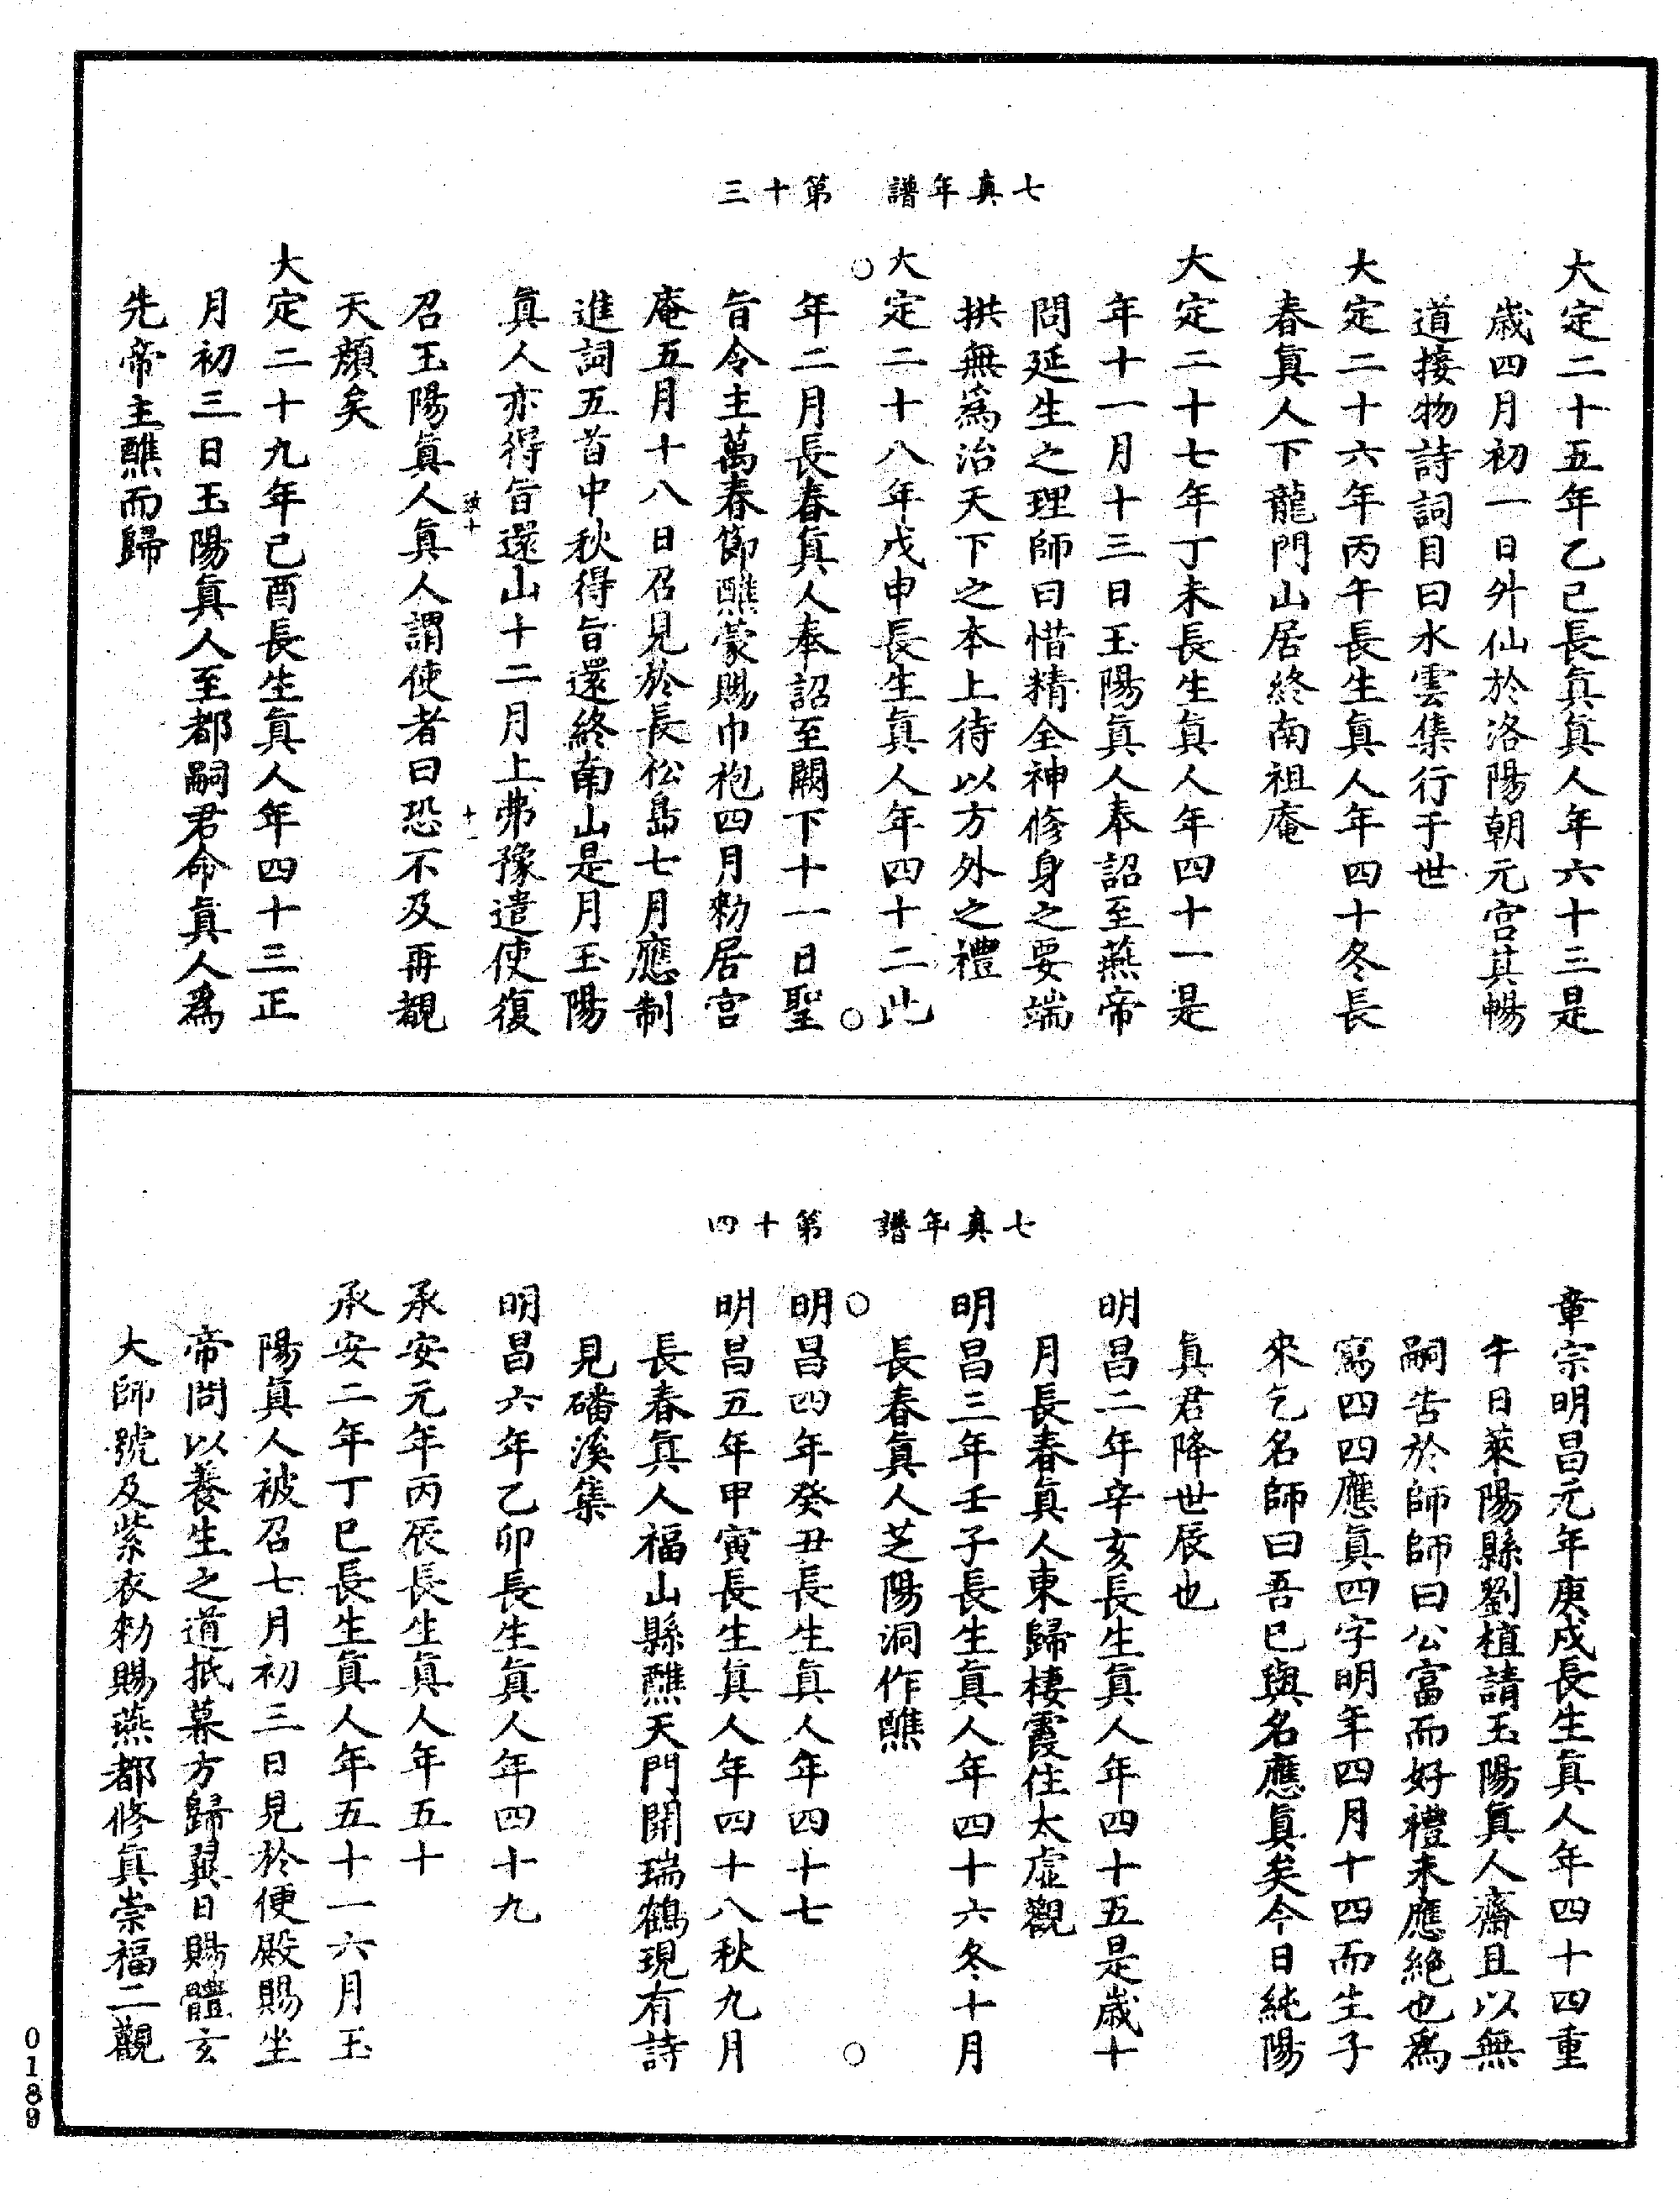 七真年譜　第十三
大定二十五年乙巳長真真人年六十三是
歲四月初一日外仙於洛陽朝元宮其暢
道接物詩詞目曰水雲集行于世
大定二十六年丙午長生真人年四十冬長
春真人下龍門山居終南祖庵
大定二十七年丁未長生真人年四十一是
年十一月十三日玉陽真人奉詔至燕帝
問延生之理師曰惜精全神修身之要端
拱無為治天下之本上待以方外之禮
大定二十八年戊申長生真人年四十二此
年二月長春真人奉詔至闕下十一日聖
旨令主萬春節醮蒙賜巾袍四月勑居宮
庵五月十八日召見於長松島七月應制
進詞五首中秋得旨還終南山是月玉陽
真人亦得旨還山十二月上弗豫遣使復
十一
召玉陽真人真人謂使者曰恐不及再覩
天顏矣
大定二十九年己酉長生真人年四十三正
月初三日玉陽真人至都嗣君命真人為
先帝主醮而歸
七真年譜　第十四
章宗明昌元年庚戌長生真人年四十四重
午日萊陽縣劉植請玉陽真人齋且以無
嗣告於師師曰公富而好禮未應絕也為
寫四四應真四字明年四月十四而生子
來乞名師曰吾已與名應真矣今日純陽
真君降世辰也
明昌二年辛亥長生真人年四十五是歲十
月長春真人東歸棲霞住太虛觀
明昌三年壬子長生真人年四十六冬十月
長春真人芝陽洞作醮
明昌四年癸丑長生真人年四十七
明昌五年甲寅長生真人年四十八秋九月
長春真人福山縣醮天門開瑞鶴現有詩
見磻溪集
明昌六年乙卯長生真人年四十九
承安元年丙辰長生真人年五十
承安二年丁巳長生真人年五十一六月玉
陽真人被召七月初三日見於便殿賜坐
帝問以養生之道抵暮方歸翼日賜體玄
大師號及紫衣勑賜燕都修真崇福二觀
0189